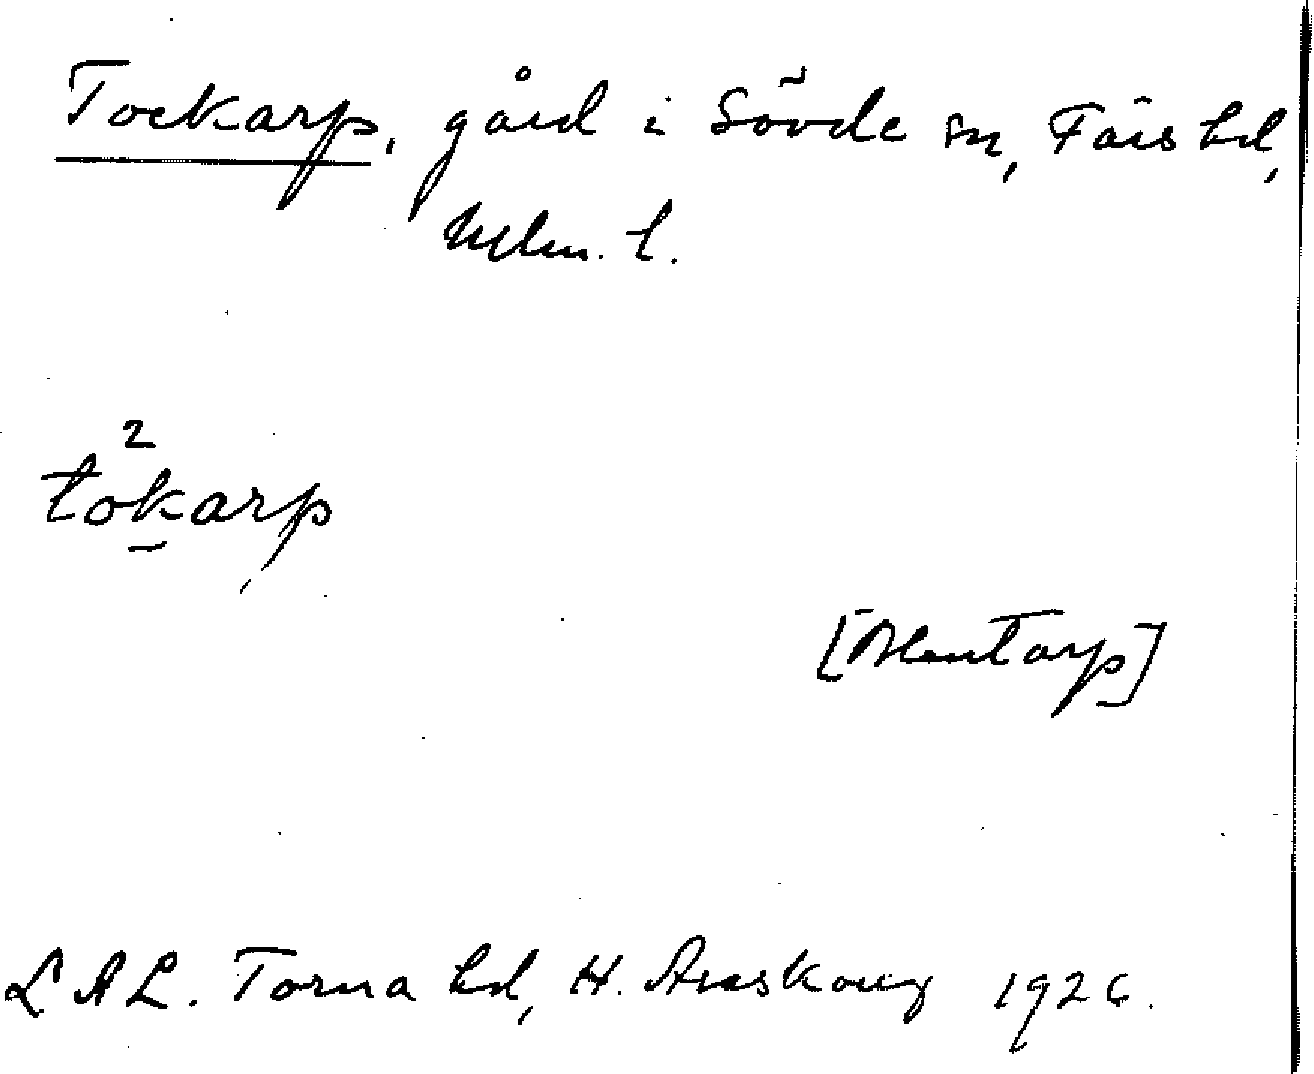 Tockarp, gård i Sövde sn, Färs hd,
Mlm. l.
2
tokarp
[Alentarp]
LAL. Torna hd, H. Areskoug 1926.